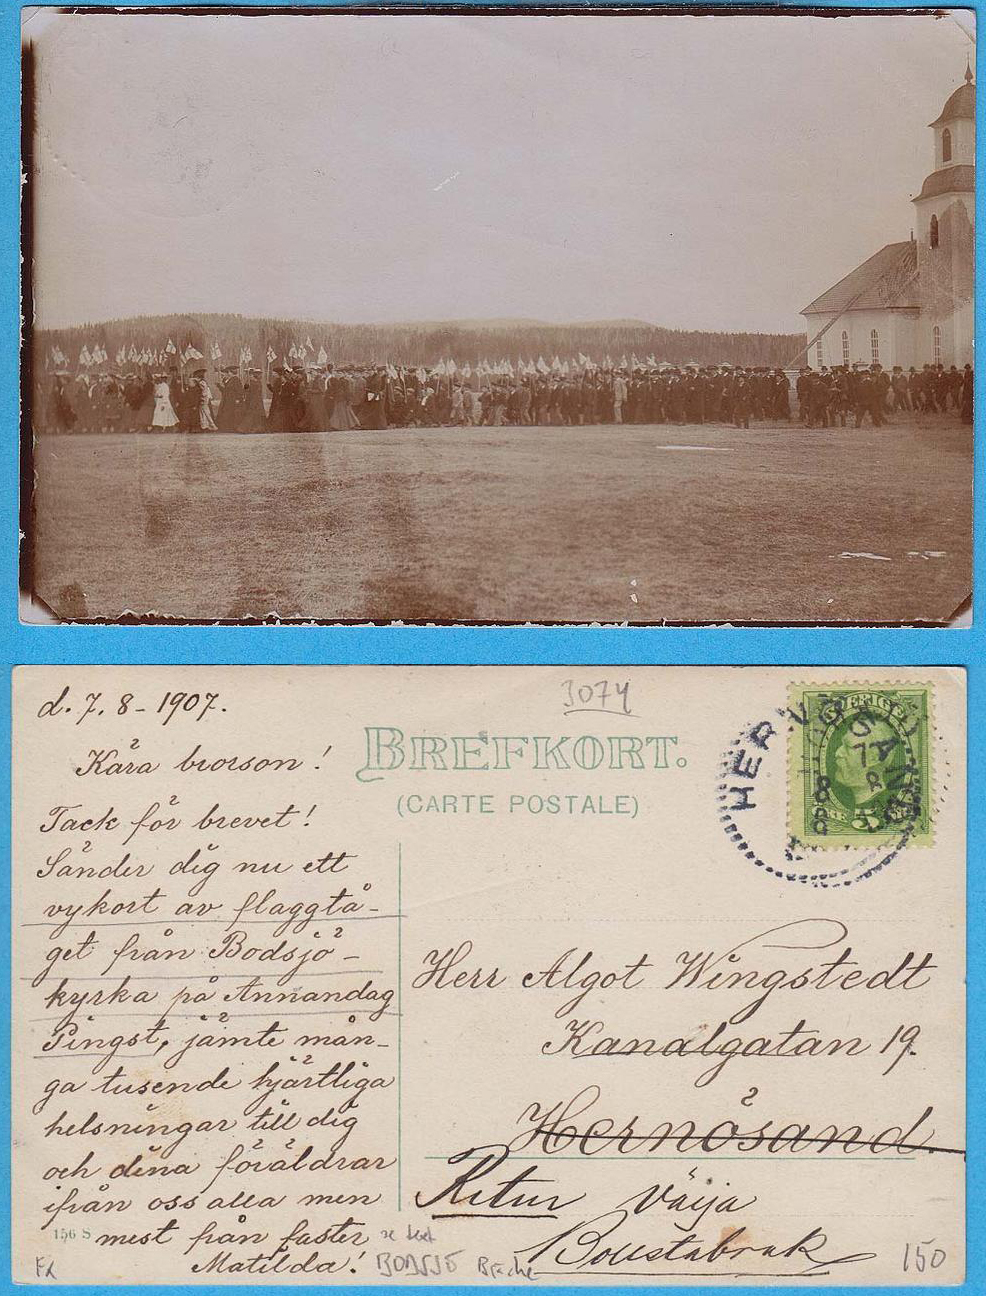 d. 7. 8 - 1907.
3074
BREFKORT.
(CARTE POSTALE)
SVERIGE
HERNÖSAND
7
8
Kära brorson!
Tack för brevet!
Sänder dig nu ett
vykort av flaggtå-
get från Bodsjö-
kyrka på Annandag
Pingst, jämte mån-
ga tusende hjärtliga
helsningar till dig
och dina föräldrar
ifrån oss alla men
mest från faster
Matilda!
156 S
Herr Algot Wingstedt
Kanalgatan 19.
Hernösand.
Retur Väija
BODSJÖ Bräcke
150